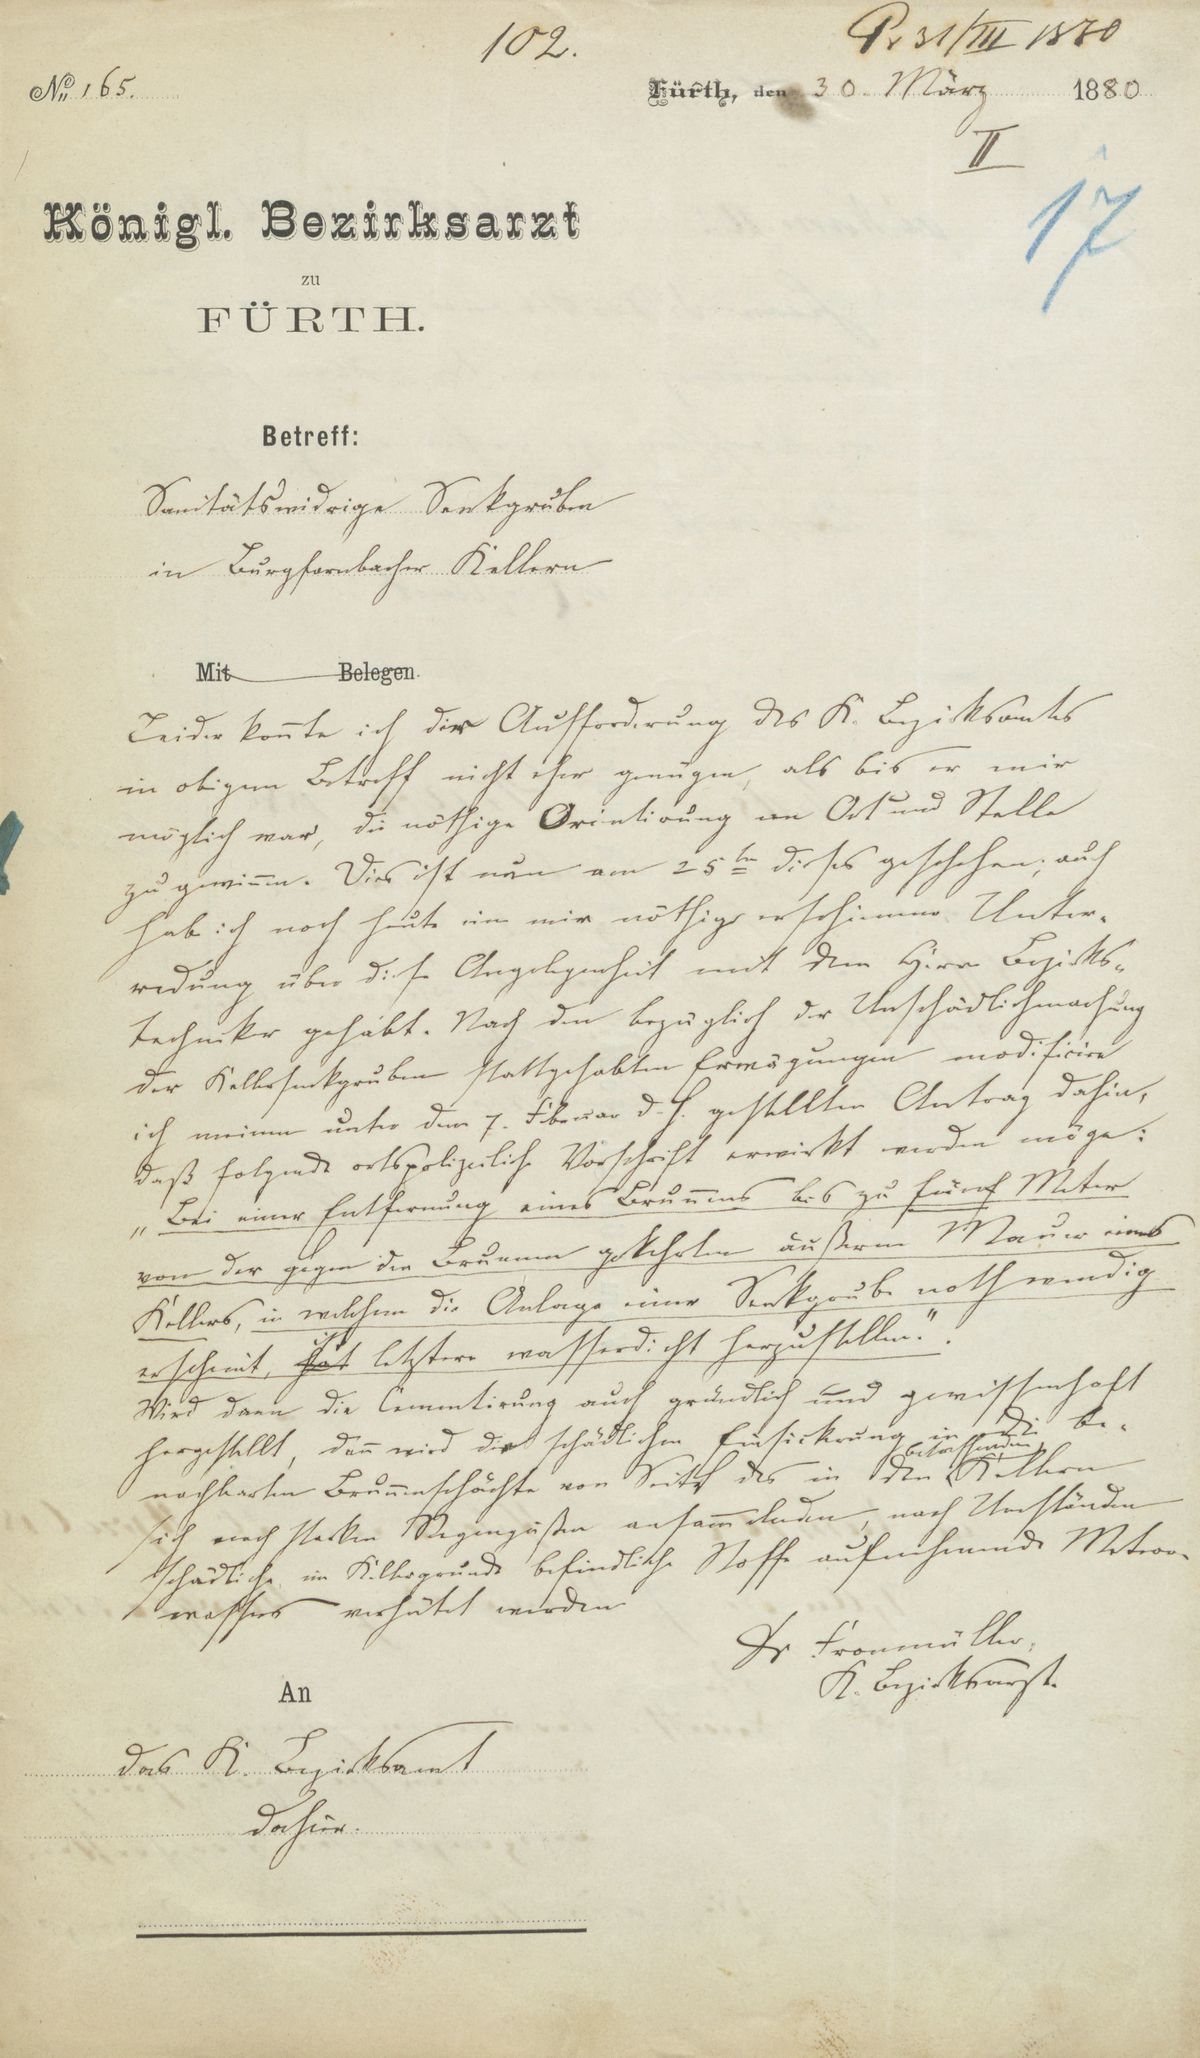 102.
Pr 31/III 1880
No 165.
Fürth, den 30. März 1880
II
17
Königl. Bezirksarzt
zu
FÜRTH.
Betreff:
Sanitätswidrige Senkgruben
in Burgfarnbacher Kellern
Mit Belegen.
Leider konnte ich der Aufforderung des K. Bezirksamtes
in obigem Betreff nicht eher genügen, als bis es mir
möglich war, die nöthige Orientirung an Ort und Stelle
zu gewinnen. Dies ist nun am 25ten dieses geschehen; auch
hab ich noch heute eine mir nöthig erschienene Unter-
redung über diese Angelegenheit mit dem Herrn Bezirks-
techniker gehabt. Nach den bezüglich der Unschädlichmachung
der Kellersenkgruben stattgehabten Erwägungen modificire
ich meinen unter dem 7. Februar d. J. gestellten Antrag dahin,
daß folgende ortspolizeiliche Vorschrift erwirkt werden möge:
„Bei einer Entfernung eines Brunnens bis zu fünf Meter
von der gegen den Brunnen gekehrten äußeren Mauer eines
Kellers, in welchem die Anlage einer Senkgrube nothwendig
erscheint, ist letztere wasserdicht herzustellen.“
Wird dann die Cementirung auch gründlich und gewissenhaft
hergestellt, dann wird die schädliche Einsickerung in die be-
nachbarten Brunnenschächte von Seite des in den betreffenden Kellern
sich nach starken Regengüßen ansammelnden, nach Umständen
schädliche im Kellergrunde befindliche Stoffe aufnehmende Meteor-
wassers verhütet werden
Dr Fronmüller,
K. Bezirksarzt.
An
das K. Bezirksamt
dahier.